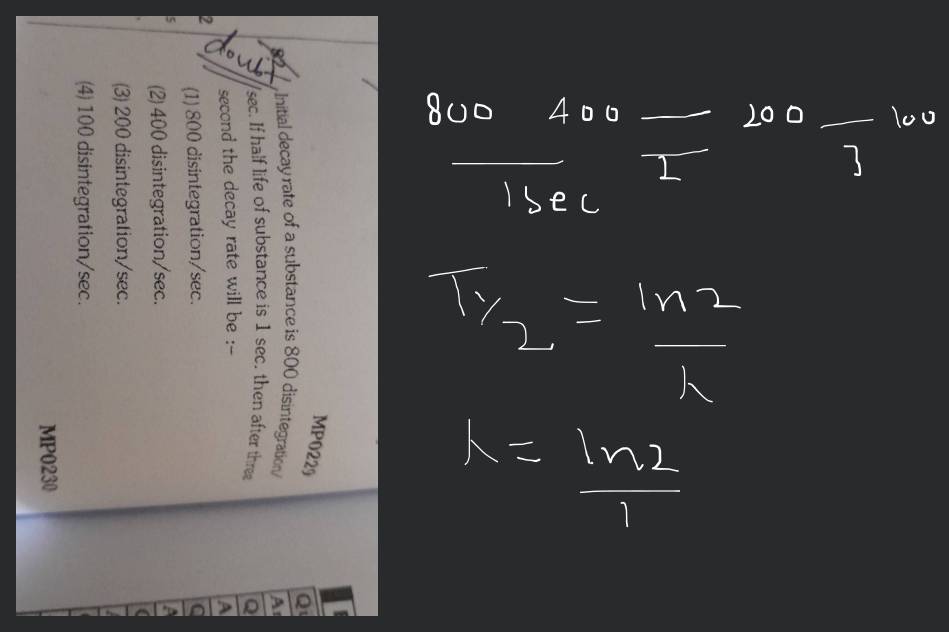 2
s
doubt
82. Initial decay rate of a substance is 800 disintegration/
sec. If half life of substance is 1 sec. then after three
second the decay rate will be :-
(1) 800 disintegration/sec.
(2) 400 disintegration/sec.
(3) 200 disintegration/sec.
(4) 100 disintegration/sec.
MP0229
MP0230
Q
A
Q
A
Q
A
800 400 — 200 — 100
1sec 2 3
T½ = ln2
λ
λ = ln2
1